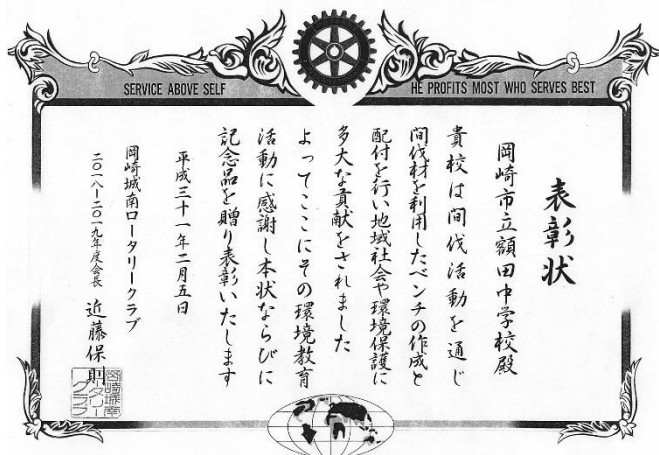 SERVICE ABOVE SELF
HE PROFITS MOST WHO SERVES BEST
表彰状
岡崎市立額田中学校殿
貴校は間伐活動を通じ
間伐材を利用したベンチの作成と
配付を行い地域社会や環境保護に
多大な貢献をされました
よってここにその環境教育
活動に感謝し本状ならびに
記念品を贈り表彰いたします
平成三十一年二月五日
岡崎城南ロータリークラブ
二〇一八ー二〇一九年度会長 近藤保則